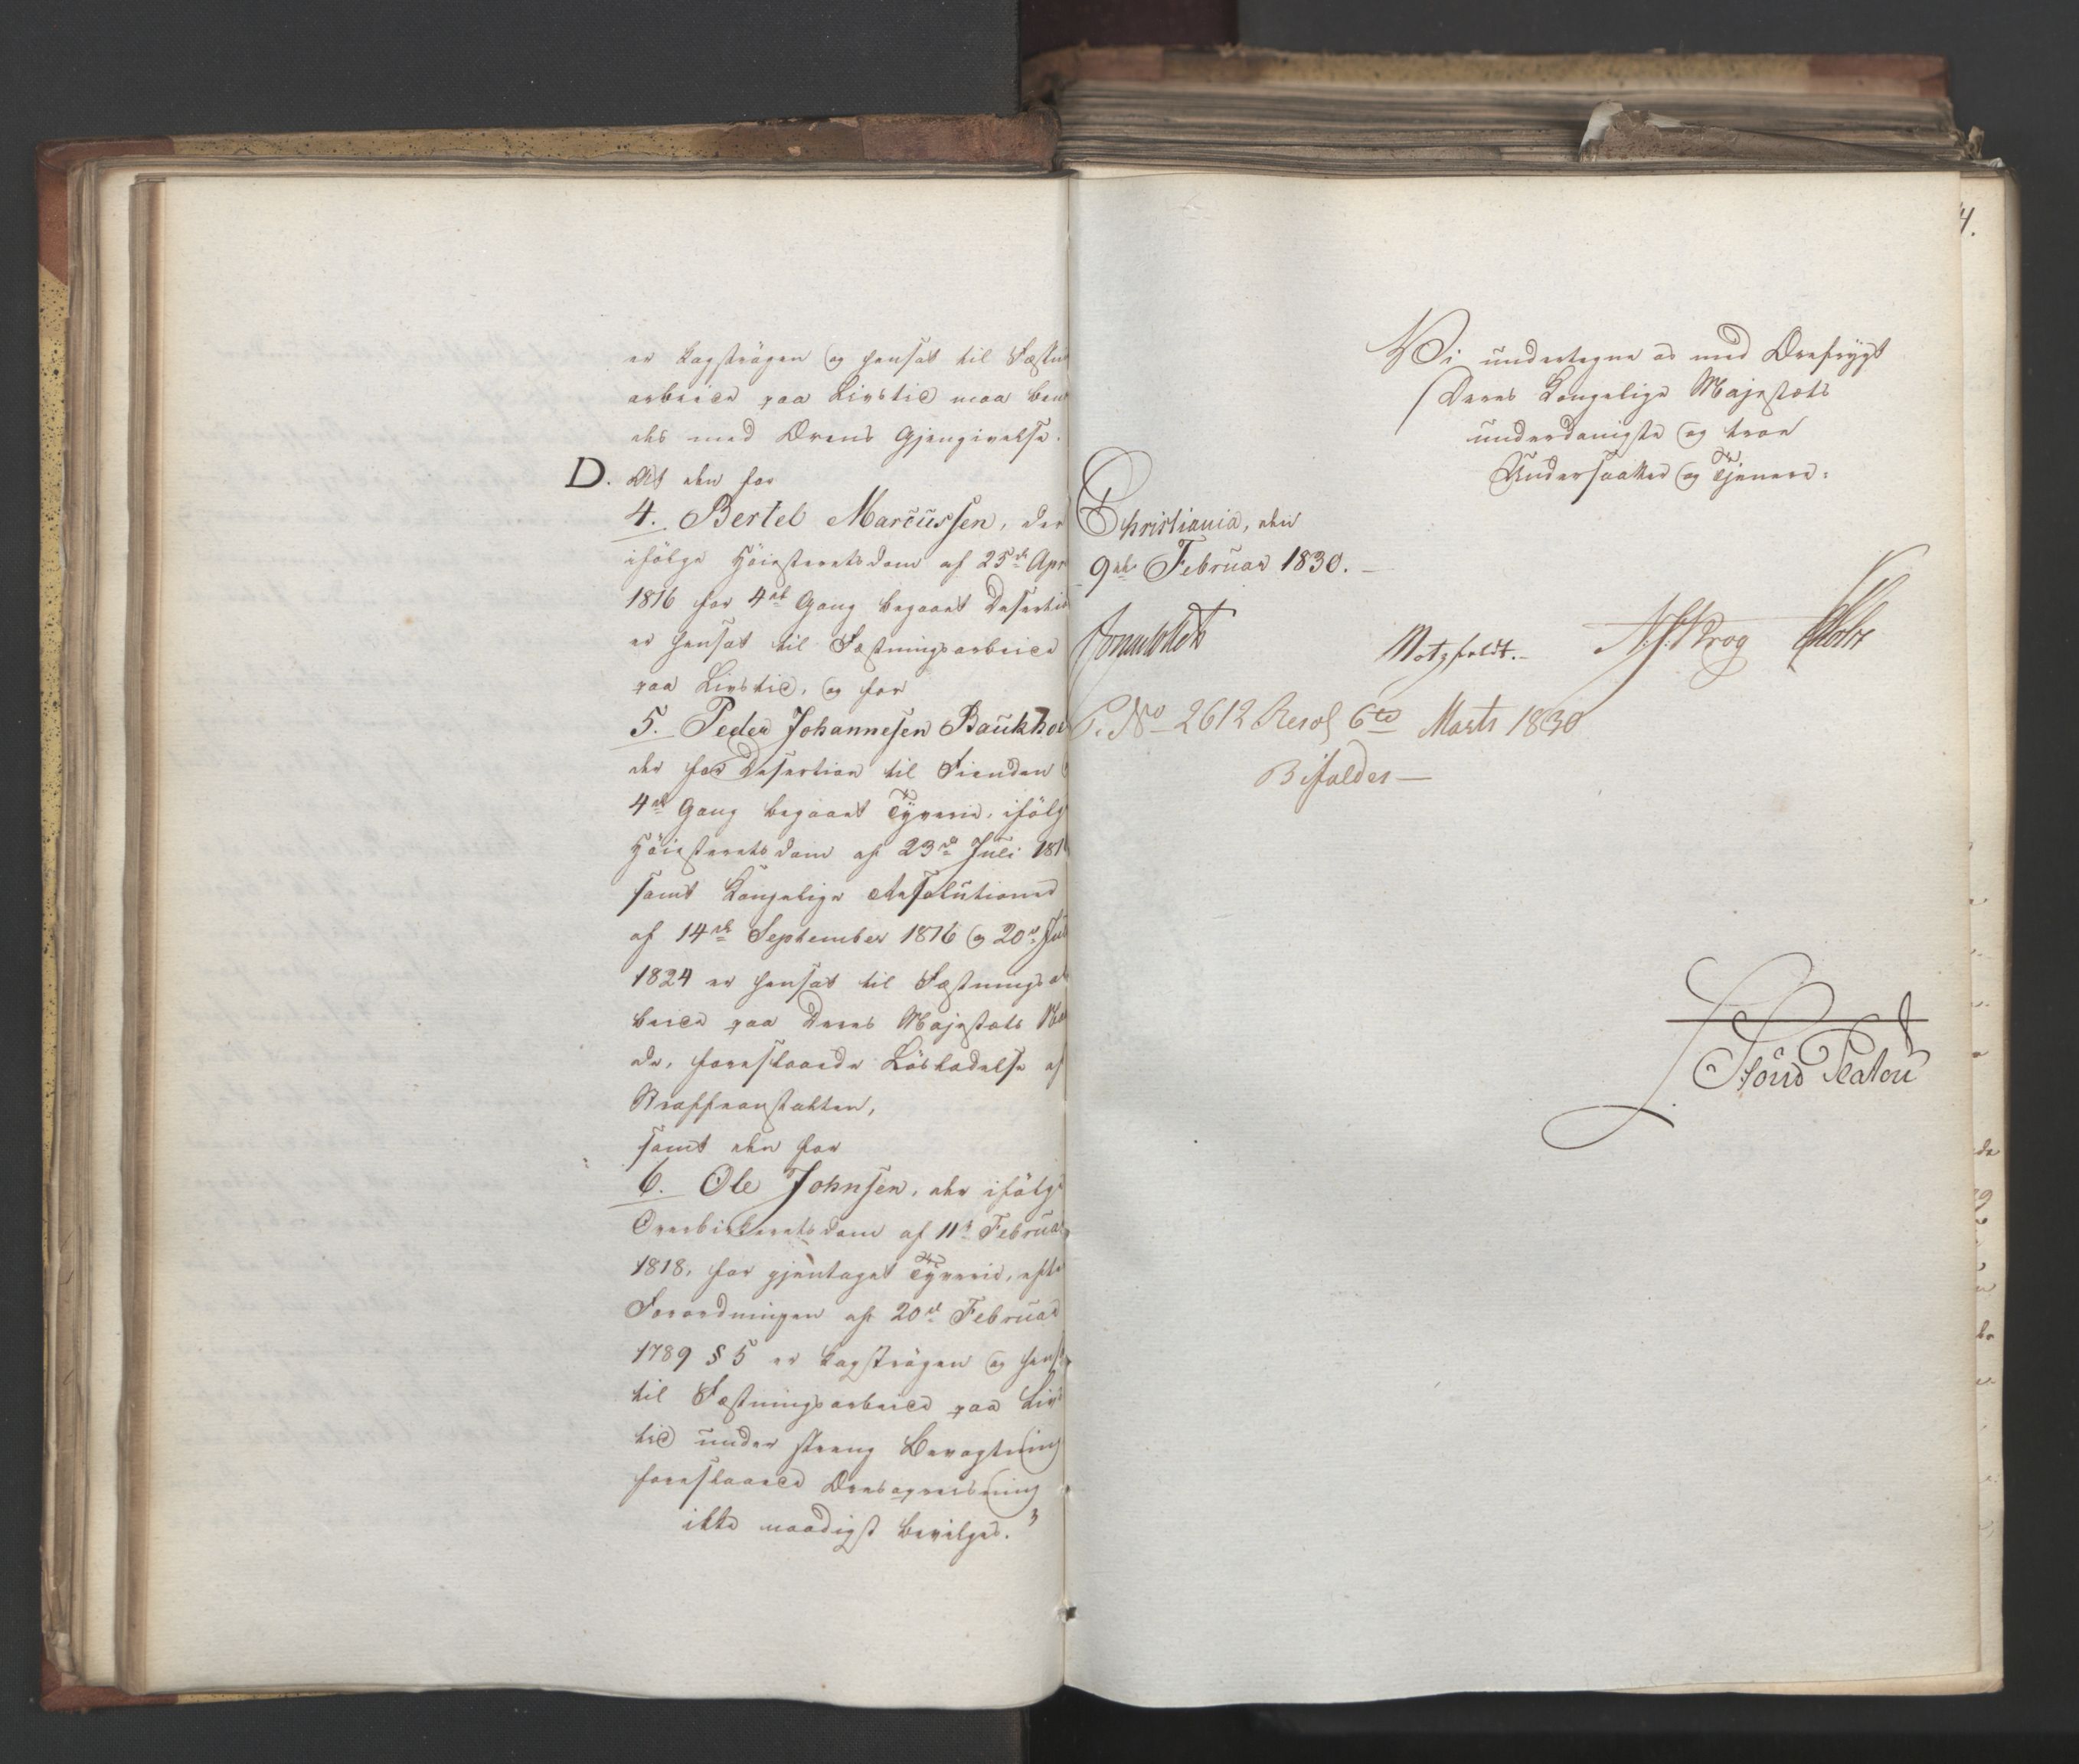 er kagstrøgen og hensat til Fæstn
arbeide paa Livstid maa ben
des med Ærens Gjengivelse.
D. At den for
4. Bertel Marcussen, der
ifølge Høiesteretsdom af 25de Apr
1816 for 4de Gang begaaet Desertio
er hensat til Fæstningsarbeide
paa Livstid, og for
5. Peder Johannesen Baukhol
der for Desertion til Fienden
4de Gang begaaet Tyverie, ifølg
Høiesteretsdom af 23de Juli 181
samt Kongelige Resolutioner
af 14de September 1816 og 20de Ju
1824 er hensat til Fæstningsar
beide paa Deres Majestæts Naa
de, foreslaaede Løsladelse af
Straffeanstalten,
samt den for
6. Ole Johnsen, der ifølge
Overbirkeretsdom af 11te Februar
1818, for gjentaget Tyverie, efter
Forordningen af 20de Februar
1789 § 5 er kagstrøgen og hens
til Fæstningsarbeide paa Livs
tid under streng Bevogtning
foreslaaede Æresopreisning
ikke naadigst bevilges.
4.
Vi undertegne os med Ærefrygt
Deres Kongelige Majestæts
underdanigste og troe
Undersaatter og Tjenere:
Christiania, den
9de Februar 1830.
Motzfeldt. Krog
P. No 2612 Resol 6te Marts 1830
Bifaldes